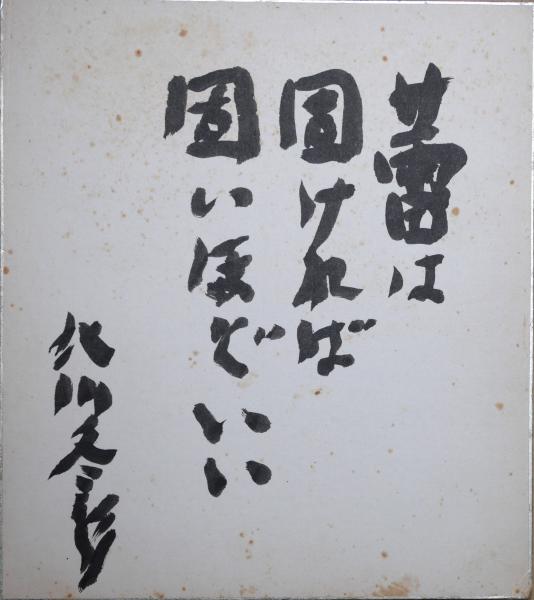 蕾は
固ければ
固いほど いい
北川